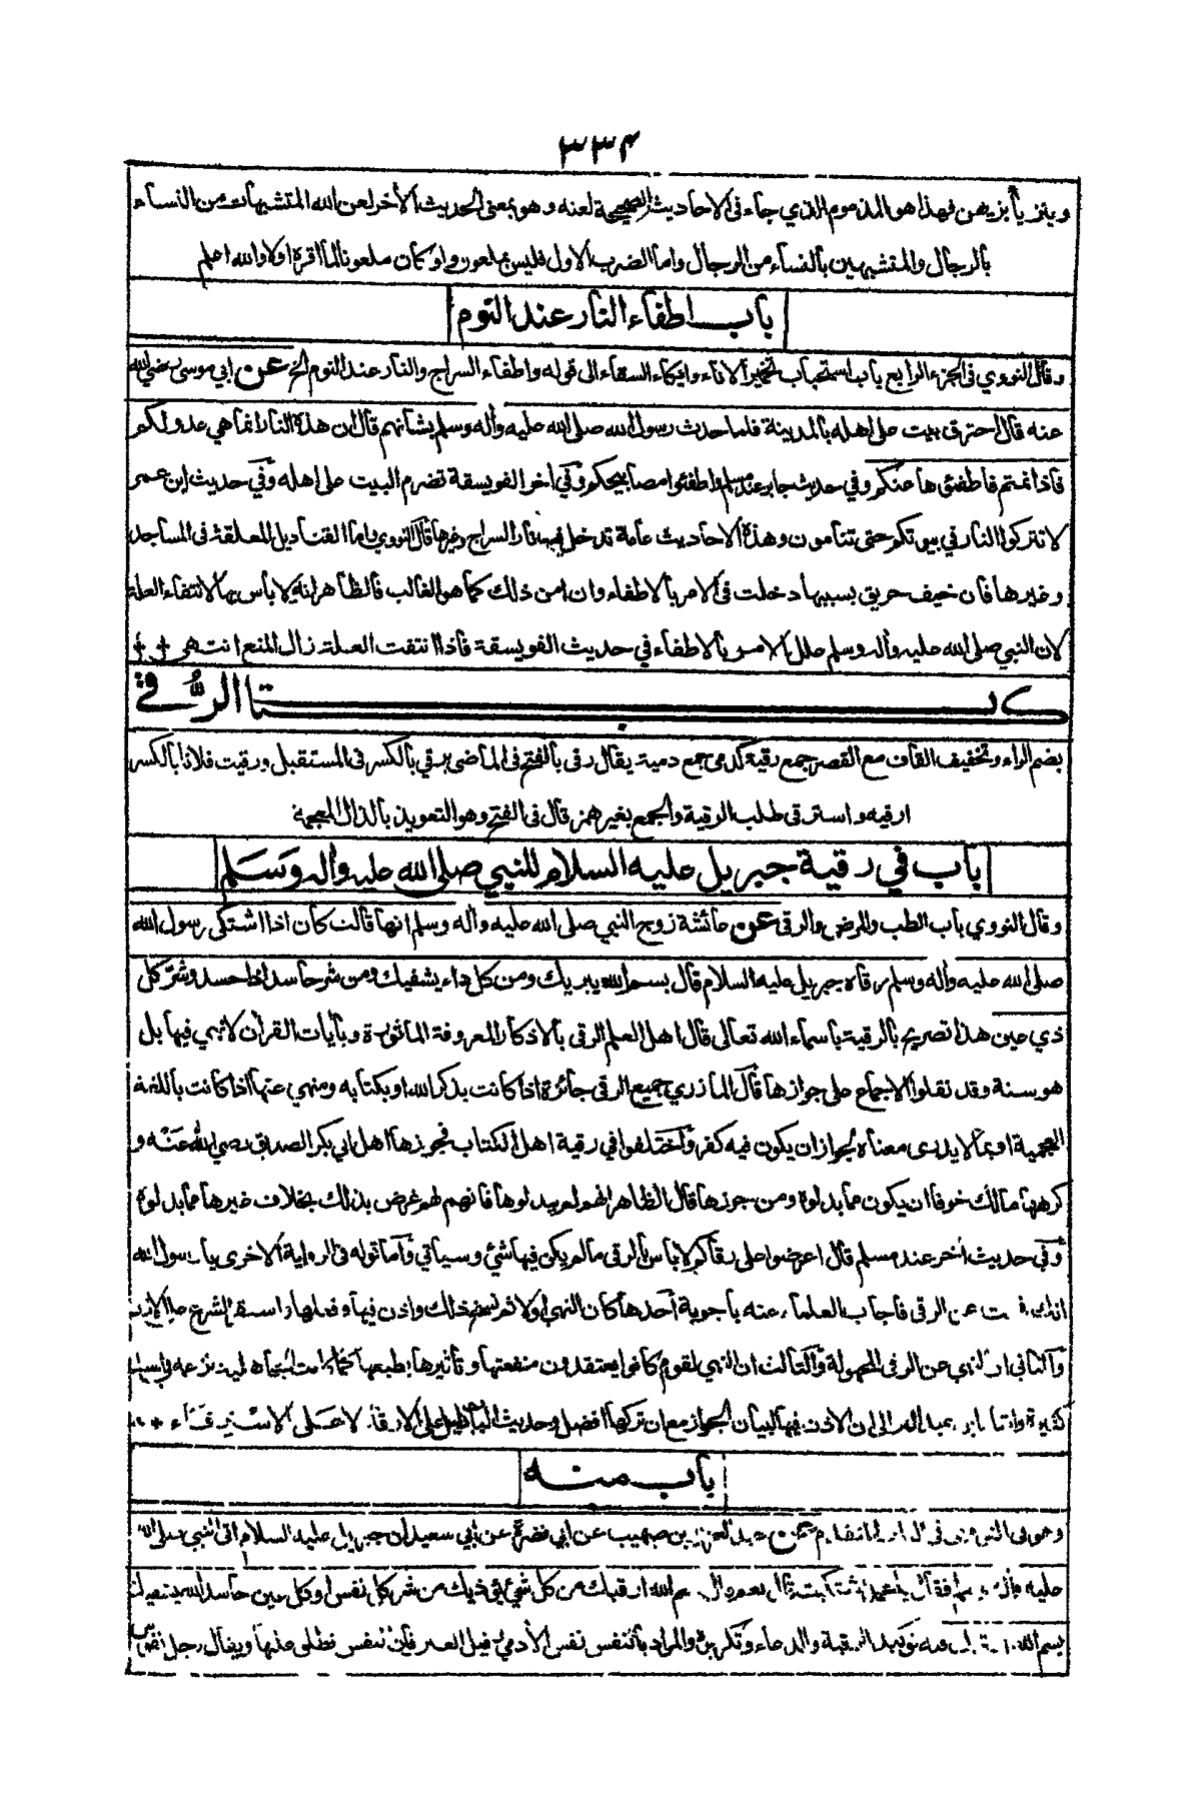 ٣٣٤
ويتزيا بزيهن فهذا هو المذموم الذي جاء في الاحاديث الصحيحة لعنه وهو بمعنى الحديث الأخر لعن الله المتشبهات من النساء
بالرجال والمتشبهين بالنساء من الرجال واما الضرب الاول فليس بملعون ولو كان ملعونا لما اقره اولا والله اعلم
باب اطفاء النار عند النوم
وقال النووي في الجزء الرابع باب استحباب تخمير الاناء وايكاء السقاء الى قوله واطفاء السراج والنار عند النوم الخ عن ابي موسى رضي الله
عنه قال احترق بيت على اهله بالمدينة فلما حدث رسول الله صلى الله عليه وأله وسلم بشأنهم قال ان هذه النار انما هي عدو لكم
فاذا نمتم فاطفئوها عنكم وفي حديث جابر عند مسلم واطفئوا مصابيحكم وفي أخر الفويسقة تضرم البيت على اهله وفي حديث ابن عمر
لا تتركوا النار في بيوتكم حتى تنامون وهذه الاحاديث عامة تدخل فيها نار السراج وغيرها قال النووي واما القناديل المعلقة في المساجد
وغيرها فان خيف حريق بسببها دخلت في الامر بالاطفاء وان امن ذلك كما هو الغالب فالظاهر انه لا بأس بها لانتفاء العلة
لان النبي صلى الله عليه وأله وسلم علل الامر بالاطفاء في حديث الفويسقة فاذا انتفت العلة زال المنع انتهى
كتاب الرقى
بضم الراء وتخفيف القاف مع القصر جمع رقية كدمى جمع دمية يقال رقى بالفتح في الماضي يرقي بالكسر في المستقبل ورقيت فلانا بالكسر
ارقيه واسترقى طلب الرقية والجمع بغير همز قال في الفتح وهو التعويذ بالذال المعجمة
باب في رقية جبريل عليه السلام للنبي صلى الله عليه وأله وسلم
وقال النووي باب الطب والمرض والرقى عن عائشة زوج النبي صلى الله عليه وأله وسلم انها قالت كان اذا اشتكى رسول الله
صلى الله عليه وأله وسلم رقاه جبريل عليه السلام قال بسم الله يبريك ومن كل داء يشفيك ومن شر حاسد اذا حسد وشر كل
ذي عين هذا تصريح بالرقية باسماء الله تعالى قال اهل العلم الرقى بالاذكار المعروفة الماثورة وبأيات القرأن لا نهي فيها بل
هو سنة وقد نقلوا الاجماع على جوازها قال المازري جميع الرقى جائزة اذا كانت بذكر الله او بكتابه ومنهي عنها اذا كانت باللغة
العجمية او بما لا يدرى معناه لجواز ان يكون فيه كفر واختلفوا في رقية اهل الكتاب فجوزها ابي بكر الصديق رضي الله عنه و
كرهها مالك خوفا ان يكون مما بدلوه ومن جوزها قال الظاهر انهم لم يبدلوها فانهم لهم غرض بذلك بخلاف غيرها مما بدلوه
وفي حديث أخر عند مسلم قال اعرضوا على رقاكم لا باس بالرقى ما لم يكن فيها شئ وسيأتي واما قوله في الرواية الاخرى يا رسول الله
انك نهيت عن الرقى فاجاب العلماء عنه باجوبة احدها كان النهي اولا ثم نسخ ذلك واذن فيها وفعلها واستقر الشرع على الاذن
والثاني ان النهي عن الرقى المجهولة والثالث ان النهي لقوم كانوا يعتقدون منفعتها وتأثيرها بطبعها كما كانت الجاهلية تزعمه في اشياء
كثيرة الى ان الاذن فيها لبيان الجواز مع ان تركها افضل وحديث الباب دليل على
باب منه
وهو في النووي في عن عبد العزيز بن صهيب عن ابي نضرة عن ابي سعيد ان جبريل عليه السلام اتى النبي صلى الله
عليه وأله وسلم فقال يا محمد اشتكيت قال نعم قال بسم الله ارقيك من كل شئ يؤذيك من شر كل نفس او كل عين حاسد الله يشفيك
بسم الله توكيد الرقية والدعاء وتكريره والمراد بالنفس نفس الأدمي وقيل العين فان النفس تطلق عليها ويقال رجل